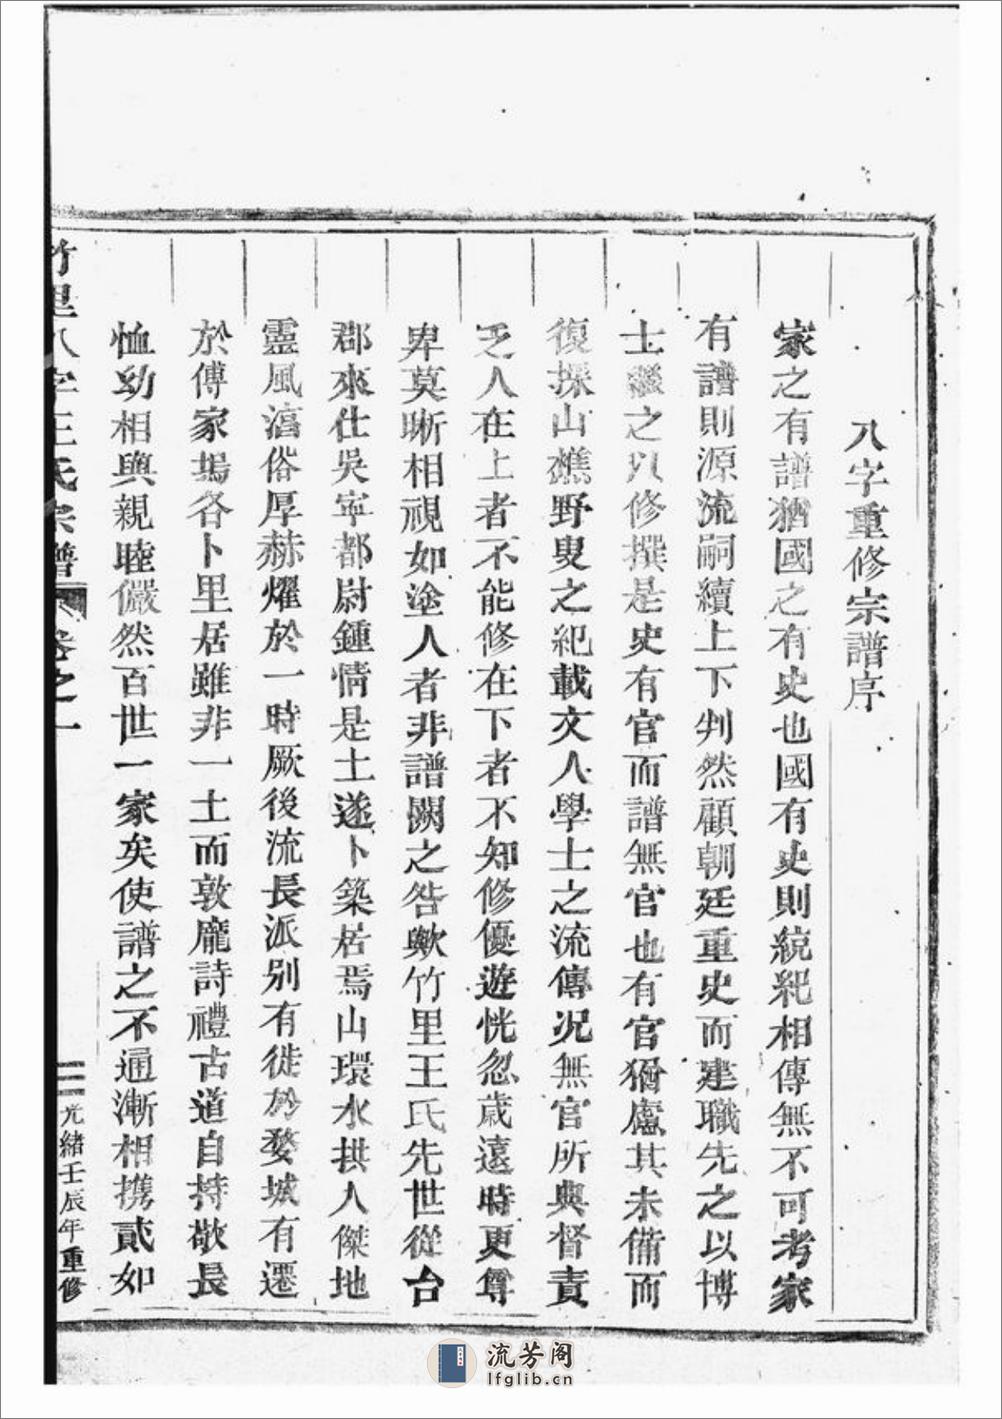 八字重修宗譜序
家之有譜猶國之有史也國有史則統紀相傳無不可考家
有譜則源流嗣續上下判然顧朝廷重史而建職先之以博
士繼之以修撰是史有官而譜無官也有官猶慮其未備而
復採山樵野叟之紀載文人學士之流傳況無官所典督責
乏人在上者不能修在下者不知修優遊恍忽歲遠時更尊
卑莫晰相視如塗人者非譜闕之咎歟竹里王氏先世從台
郡來仕吳寧都尉鍾情是土遂卜築居焉山環水拱人傑地
靈風濇俗厚赫耀於一時厥後流長派別有徙於婺城有遷
於傅家塢各卜里居雖非一土而敦龐詩禮古道自持敬長
恤幼相與親睦儼然百世一家矣使譜之不通漸相携貳如
竹里八字王氏宗譜 卷之一 二 光緒壬辰年重修
流芳阁
lfglib.cn